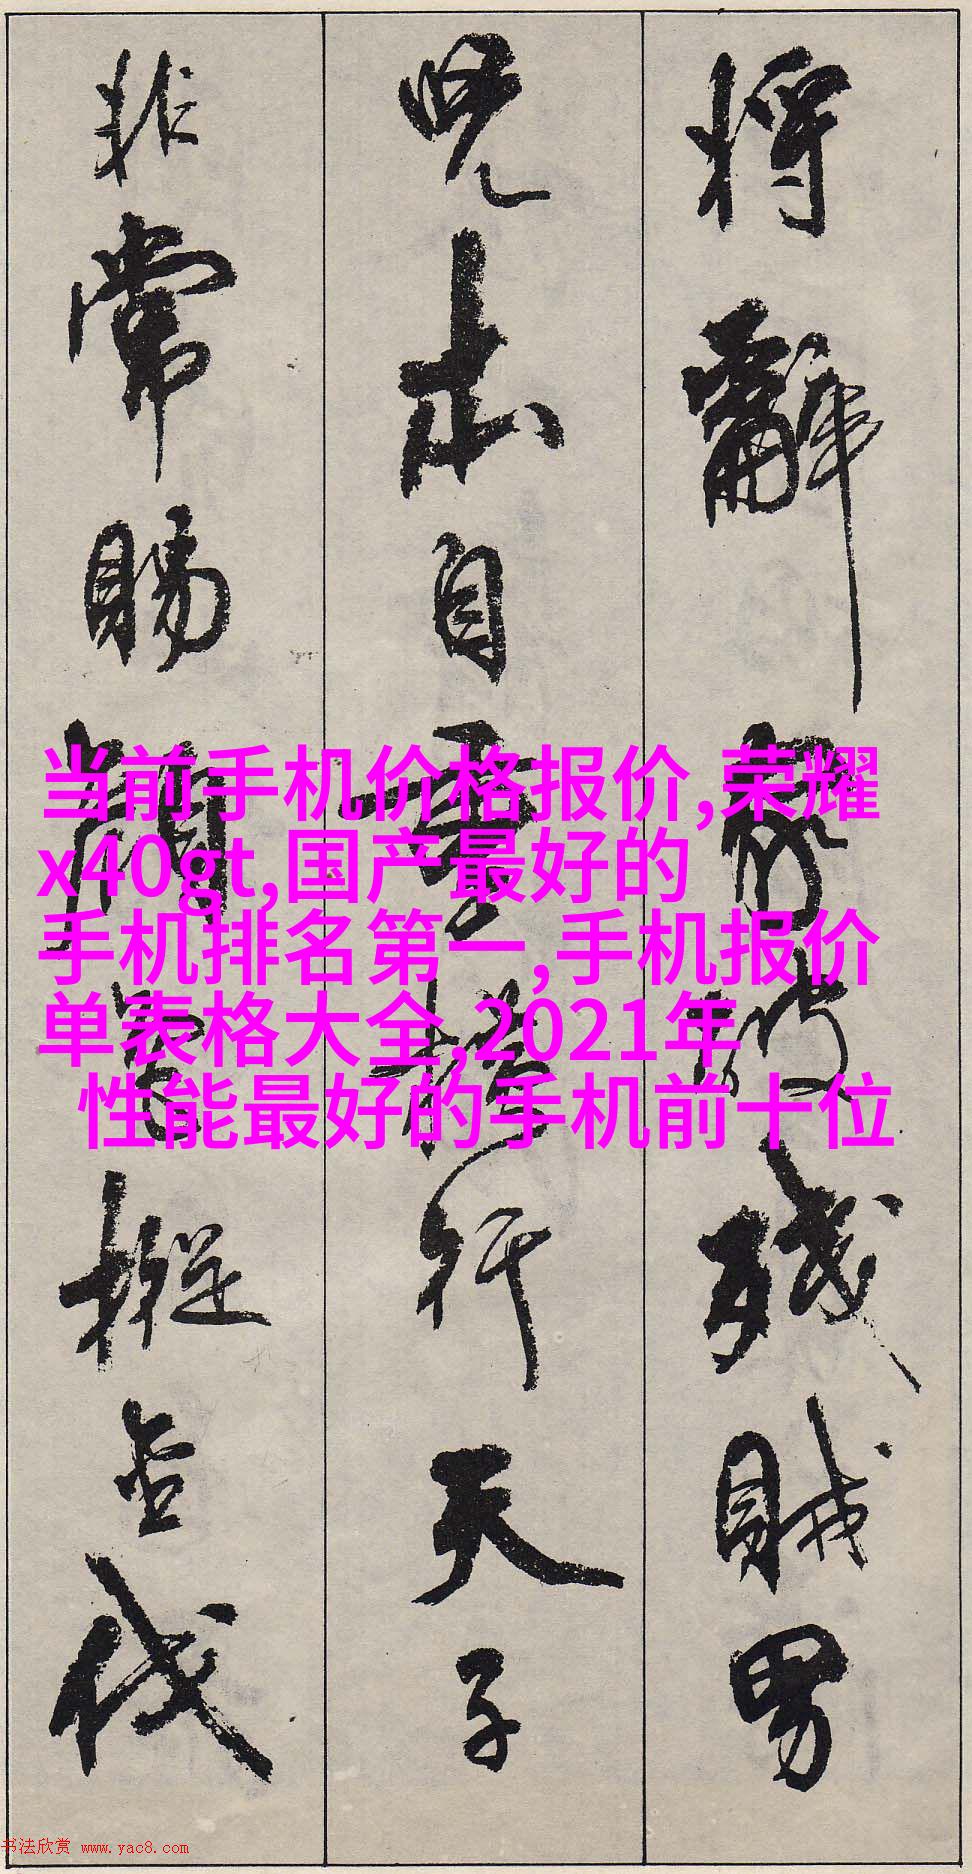 將辭家破殘賊男
兒本自重橫行天子
非常賜顏色摐金伐
当前手机价格报价,荣耀
x40gt,国产最好的
手机排名第一,手机报价
单表格大全,2021年
性能最好的手机前十位
书法欣赏 www.yac8.com